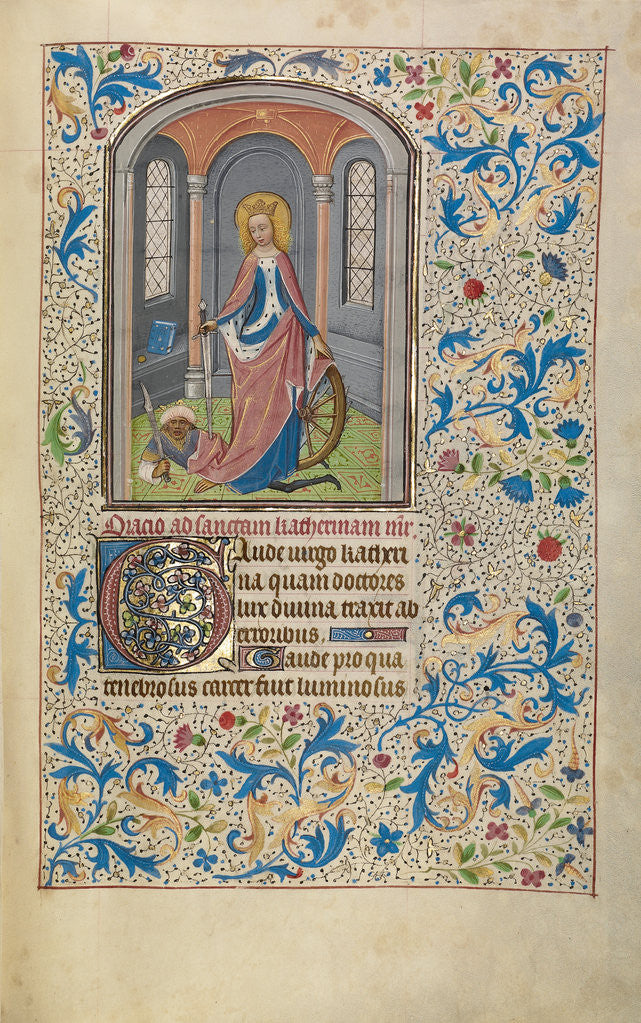 Oracio ad sanctam katherinam vir
Gaude uirgo katheri
na quam doctores
lux diuina traxit ab
erroribus
Gaude pro qua
tenebrosus carcer fiut luminosus